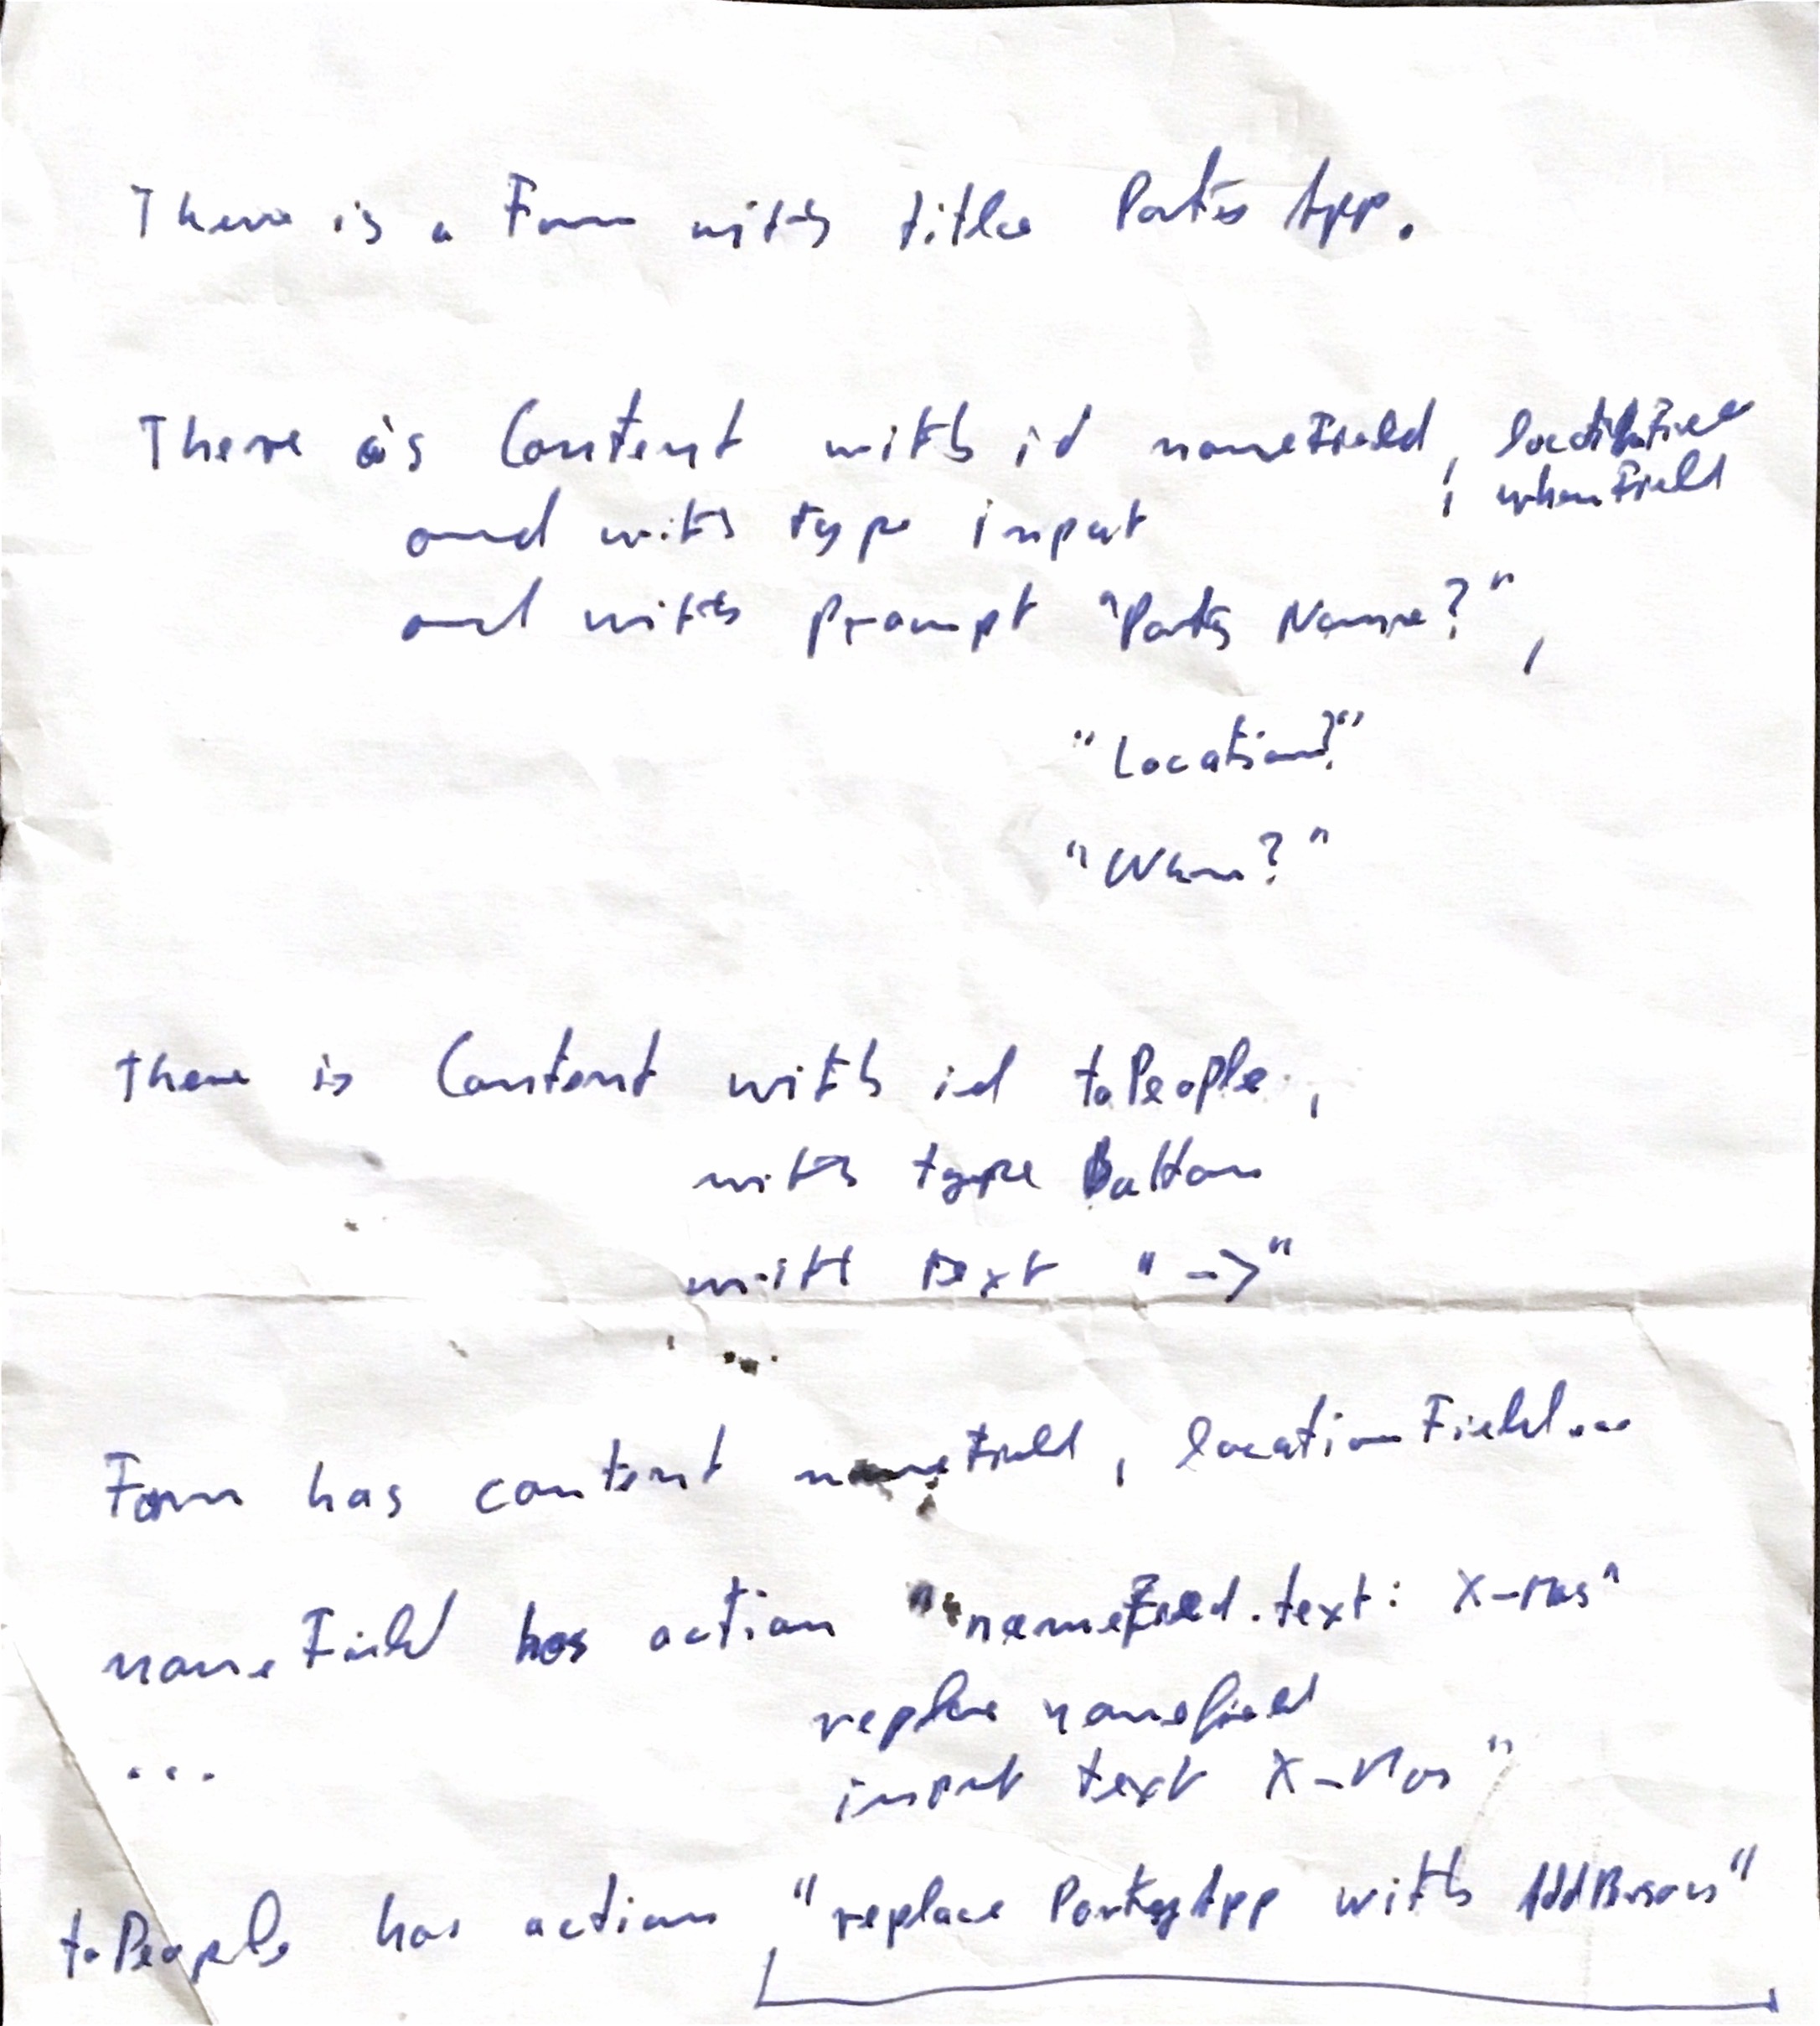 There is a Form with title Party App.
There is Content with id nameField, locationField
, whenField
and with type input
and with prompt "Party Name?",
"Location?"
"When?"
There is Content with id toPeople,
with type Button
with text "->"
Form has content nameField, locationField...
nameField has action "nameField.text: X-Mas"
replace namefield
input text X-Mas"
...
toPeople has action "replace PartyApp with"